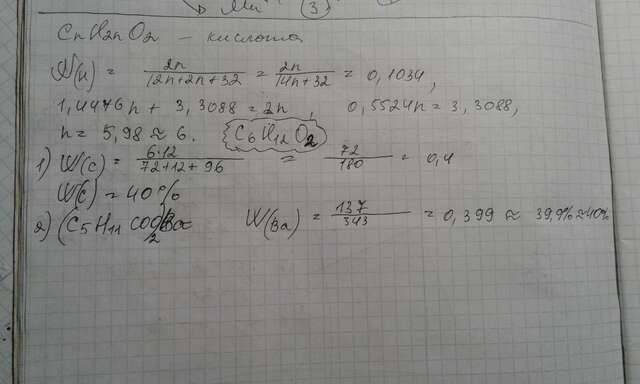 ③
CnH2nO2 – кислота
W(н) = 2n / 12n+2n+32 = 2n / 14n+32 = 0,1034,
1,4476n + 3,3088 = 2n, 0,5524n = 3,3088,
n = 5,98 ≈ 6. C6H12O2
1) W(C) = 6·12 / 72+12+96 = 72 / 180 = 0,4
W(C) = 40%
2) (C5H11COO)2Ba W(Ba) = 137 / 343 = 0,399 ≈ 39,9% ≈ 40%